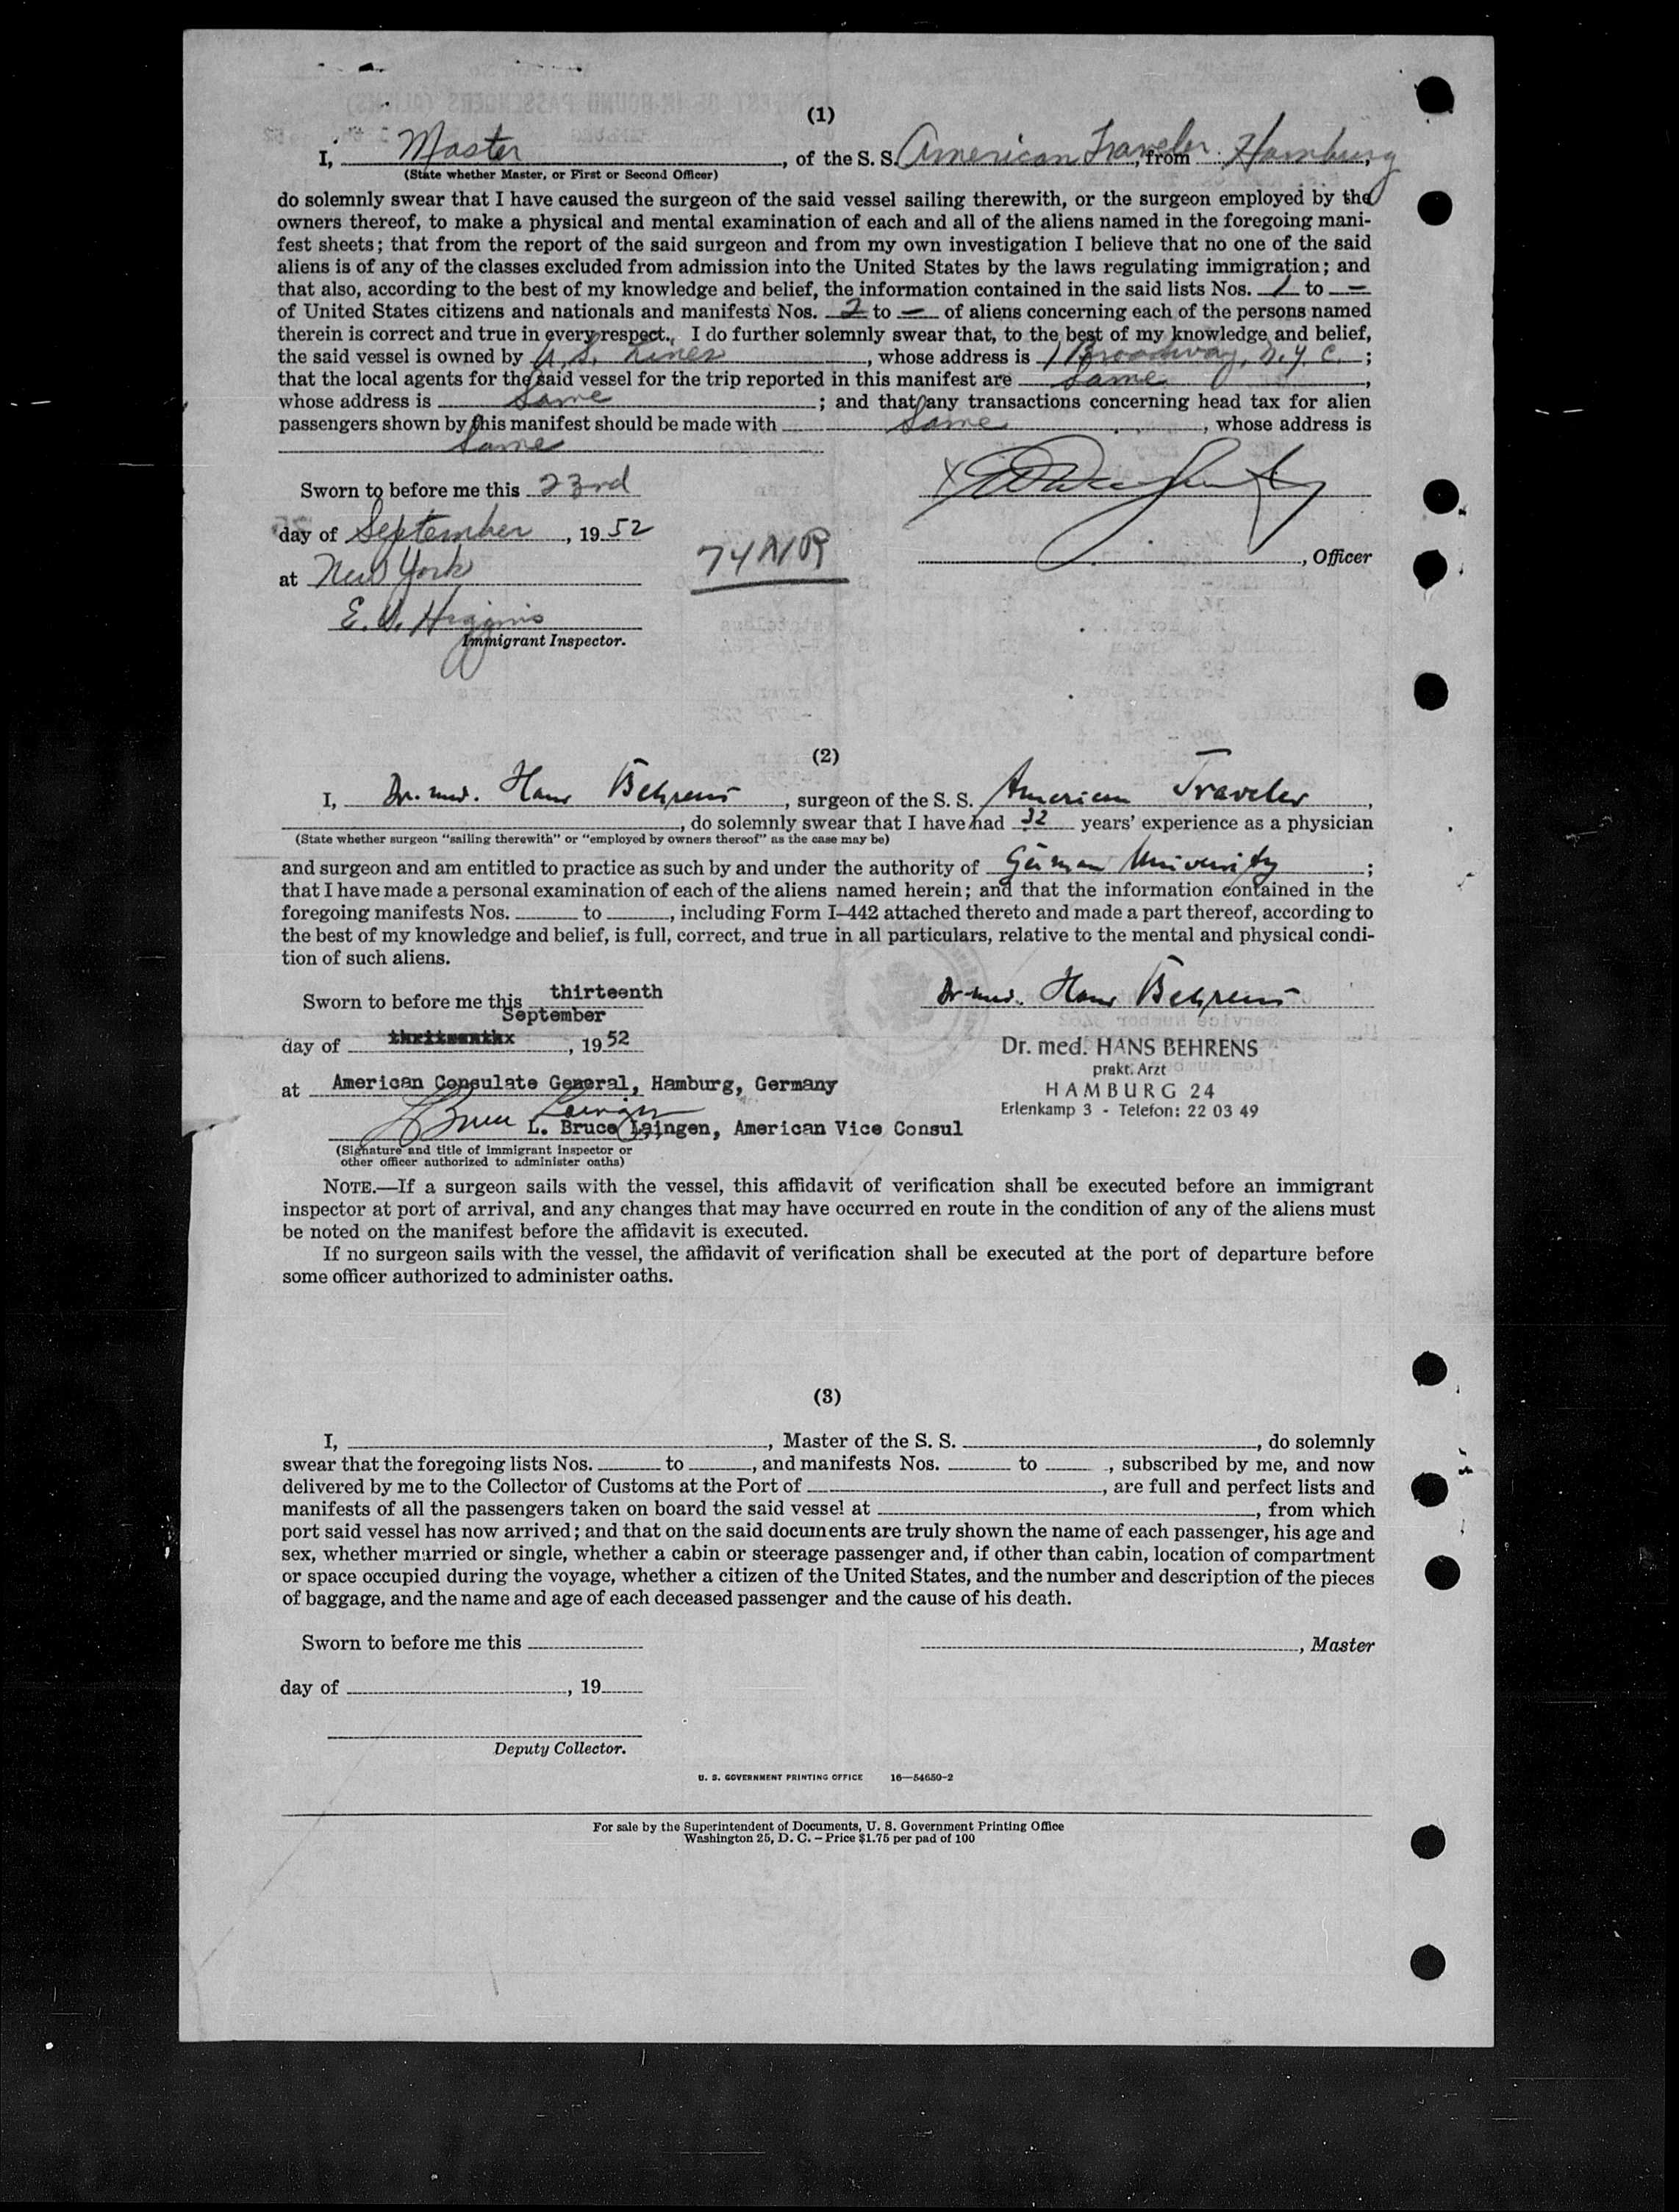 (1)
I, Master, of the S. S. American Traveler, from Hamburg,
(State whether Master, or First or Second Officer)
do solemnly swear that I have caused the surgeon of the said vessel sailing therewith, or the surgeon employed by the
owners thereof, to make a physical and mental examination of each and all of the aliens named in the foregoing mani-
fest sheets; that from the report of the said surgeon and from my own investigation I believe that no one of the said
aliens is of any of the classes excluded from admission into the United States by the laws regulating immigration; and
that also, according to the best of my knowledge and belief, the information contained in the said lists Nos. 1 to —
of United States citizens and nationals and manifests Nos. 2 to — of aliens concerning each of the persons named
therein is correct and true in every respect. I do further solemnly swear that, to the best of my knowledge and belief,
the said vessel is owned by U. S. Lines, whose address is 1 Broadway, N. Y. C.;
that the local agents for the said vessel for the trip reported in this manifest are Same,
whose address is Same; and that any transactions concerning head tax for alien
passengers shown by this manifest should be made with Same, whose address is
Same
Sworn to before me this 23rd
day of September, 1952
74 NR
, Officer
at New York
E. V. Higgins
Immigrant Inspector.
(2)
I, Dr. med. Hans Behrens, surgeon of the S. S. American Traveler,
, do solemnly swear that I have had 32 years' experience as a physician
(State whether surgeon "sailing therewith" or "employed by owners thereof" as the case may be)
and surgeon and am entitled to practice as such by and under the authority of German University;
that I have made a personal examination of each of the aliens named herein; and that the information contained in the
foregoing manifests Nos. to , including Form I-442 attached thereto and made a part thereof, according to
the best of my knowledge and belief, is full, correct, and true in all particulars, relative to the mental and physical condi-
tion of such aliens.
Sworn to before me this thirteenth
Dr. med. Hans Behrens
September
day of , 1952
Dr. med. HANS BEHRENS
prakt. Arzt
HAMBURG 24
Erlenkamp 3 - Telefon: 22 03 49
at American Consulate General, Hamburg, Germany
L. Bruce Laingen
L. Bruce Laingen, American Vice Consul
(Signature and title of immigrant inspector or
other officer authorized to administer oaths)
NOTE.—If a surgeon sails with the vessel, this affidavit of verification shall be executed before an immigrant
inspector at port of arrival, and any changes that may have occurred en route in the condition of any of the aliens must
be noted on the manifest before the affidavit is executed.
If no surgeon sails with the vessel, the affidavit of verification shall be executed at the port of departure before
some officer authorized to administer oaths.
(3)
I, , Master of the S. S. , do solemnly
swear that the foregoing lists Nos. to , and manifests Nos. to , subscribed by me, and now
delivered by me to the Collector of Customs at the Port of , are full and perfect lists and
manifests of all the passengers taken on board the said vessel at , from which
port said vessel has now arrived; and that on the said documents are truly shown the name of each passenger, his age and
sex, whether married or single, whether a cabin or steerage passenger and, if other than cabin, location of compartment
or space occupied during the voyage, whether a citizen of the United States, and the number and description of the pieces
of baggage, and the name and age of each deceased passenger and the cause of his death.
Sworn to before me this
, Master
day of , 19
Deputy Collector.
U. S. GOVERNMENT PRINTING OFFICE 16—54650-2
For sale by the Superintendent of Documents, U. S. Government Printing Office
Washington 25, D. C. - Price $1.75 per pad of 100